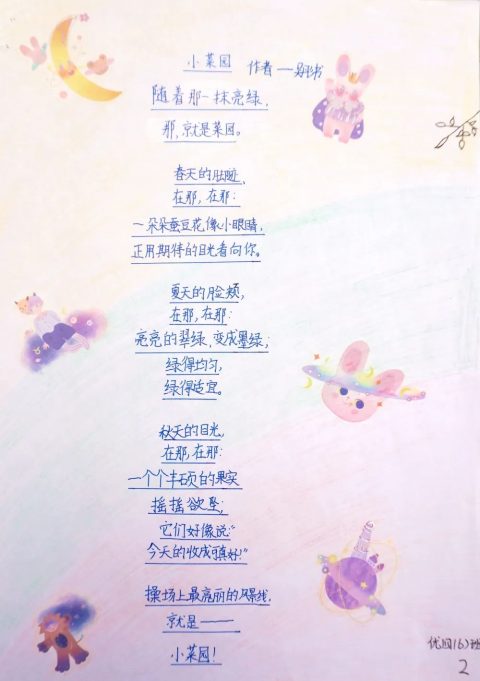 小菜园 作者——
随着那一抹亮绿,
那,就是菜园。
春天的
在那,在那:
一朵朵蚕豆花像小眼睛,
正用期待的目光看向你。
夏天的脸颊,
在那,在那:
亮亮的翠绿,变成墨绿;
绿得均匀,
绿得适宜。
秋天的目光,
在那,在那:
一个个丰硕的果实
摇摇欲坠,
它们好像说:“
今天的收成真好!”
操场上最亮丽的风景线,
就是——
小菜园!
优四(6)班
2